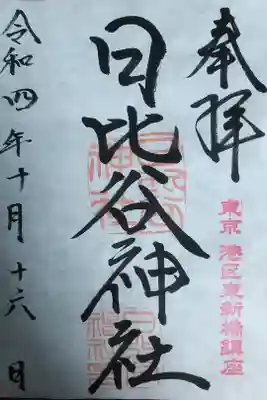 奉拝
東京 港区東新橋鎮座
日比谷神社
令和四年十月十六日